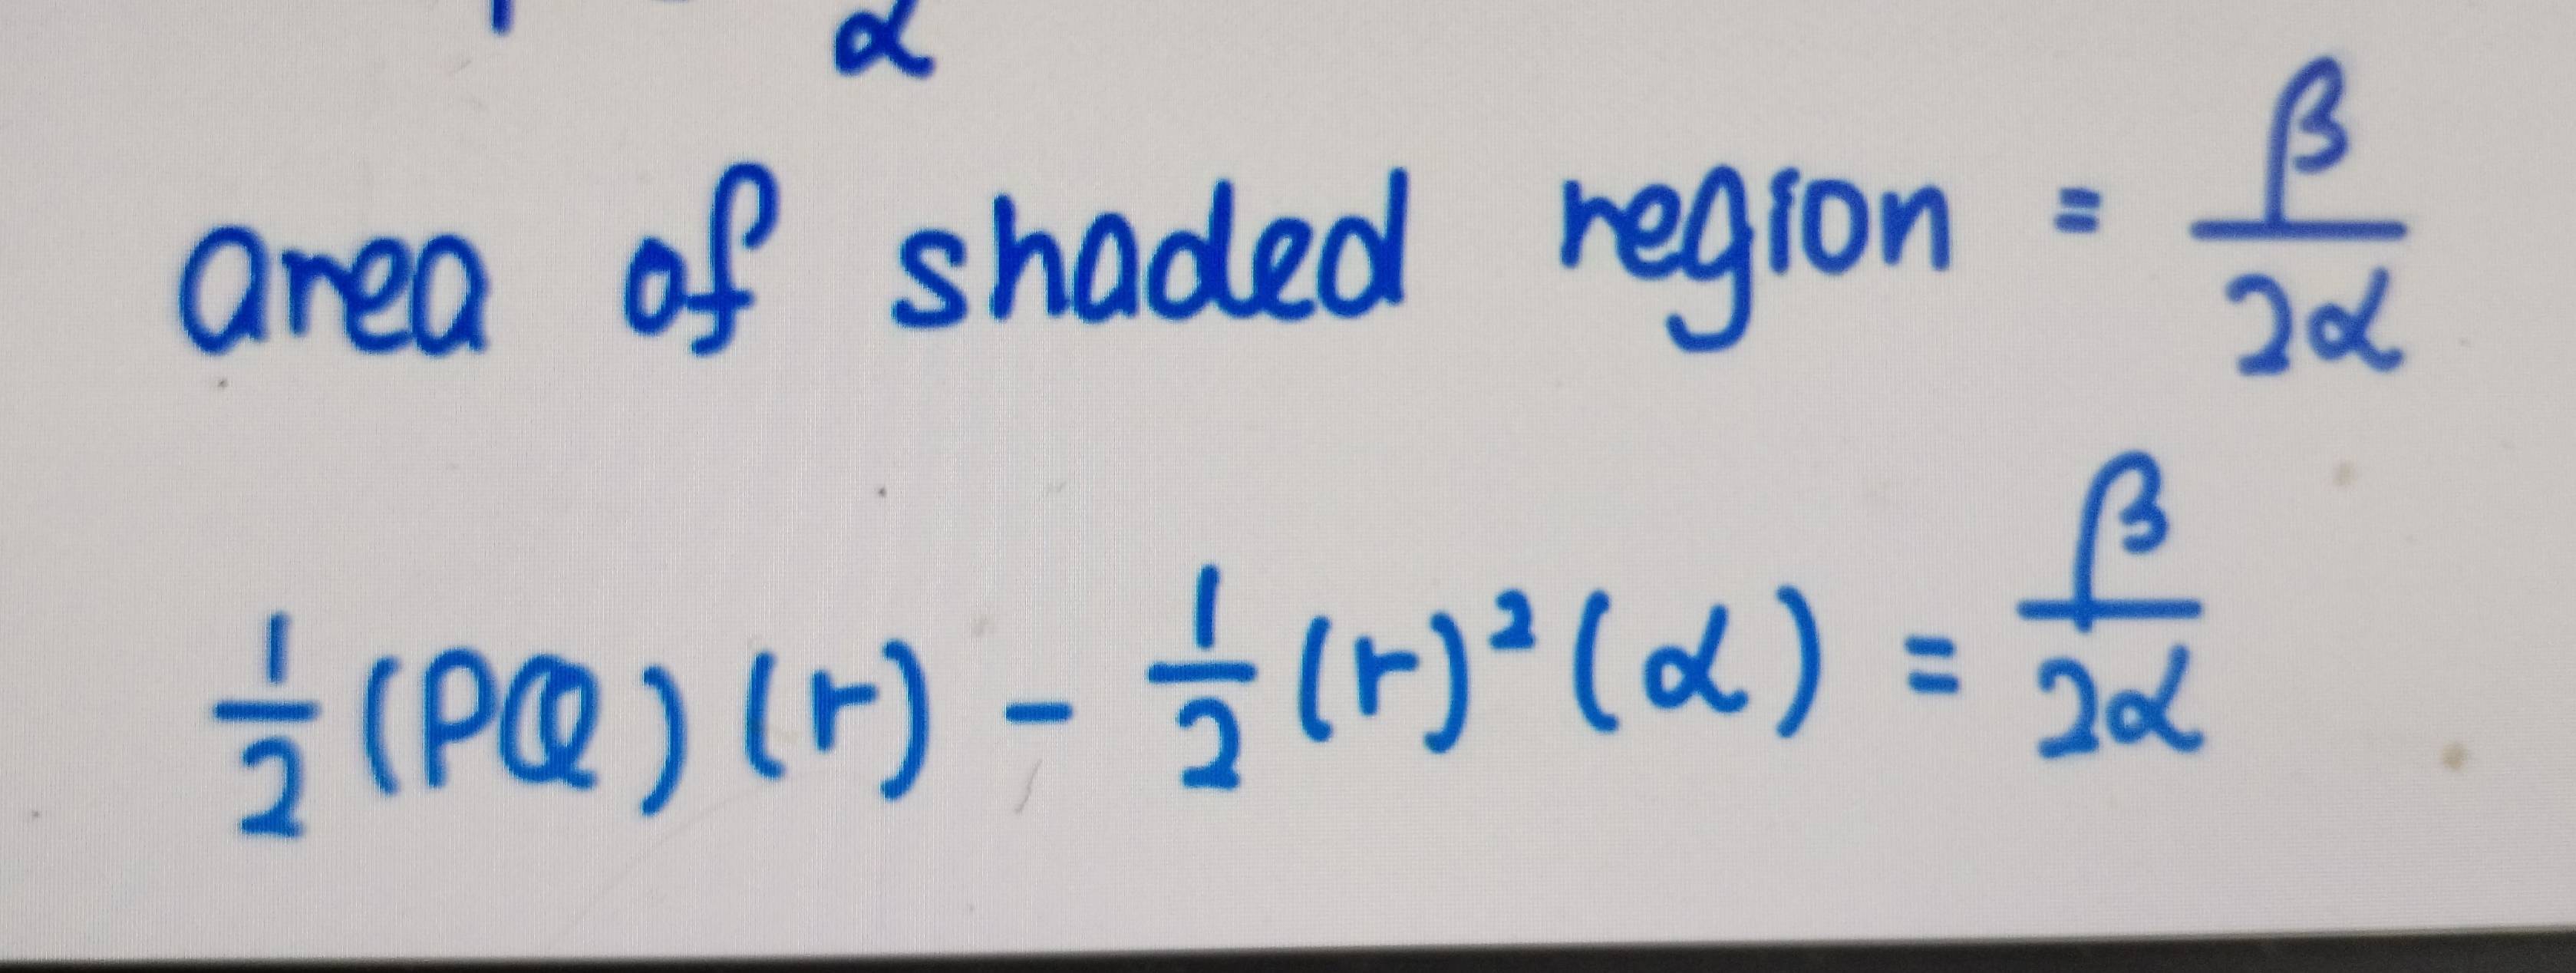 α
area of shaded region = β/2α
1/2 (PQ) (r) - 1/2 (r)² (α) = β/2α